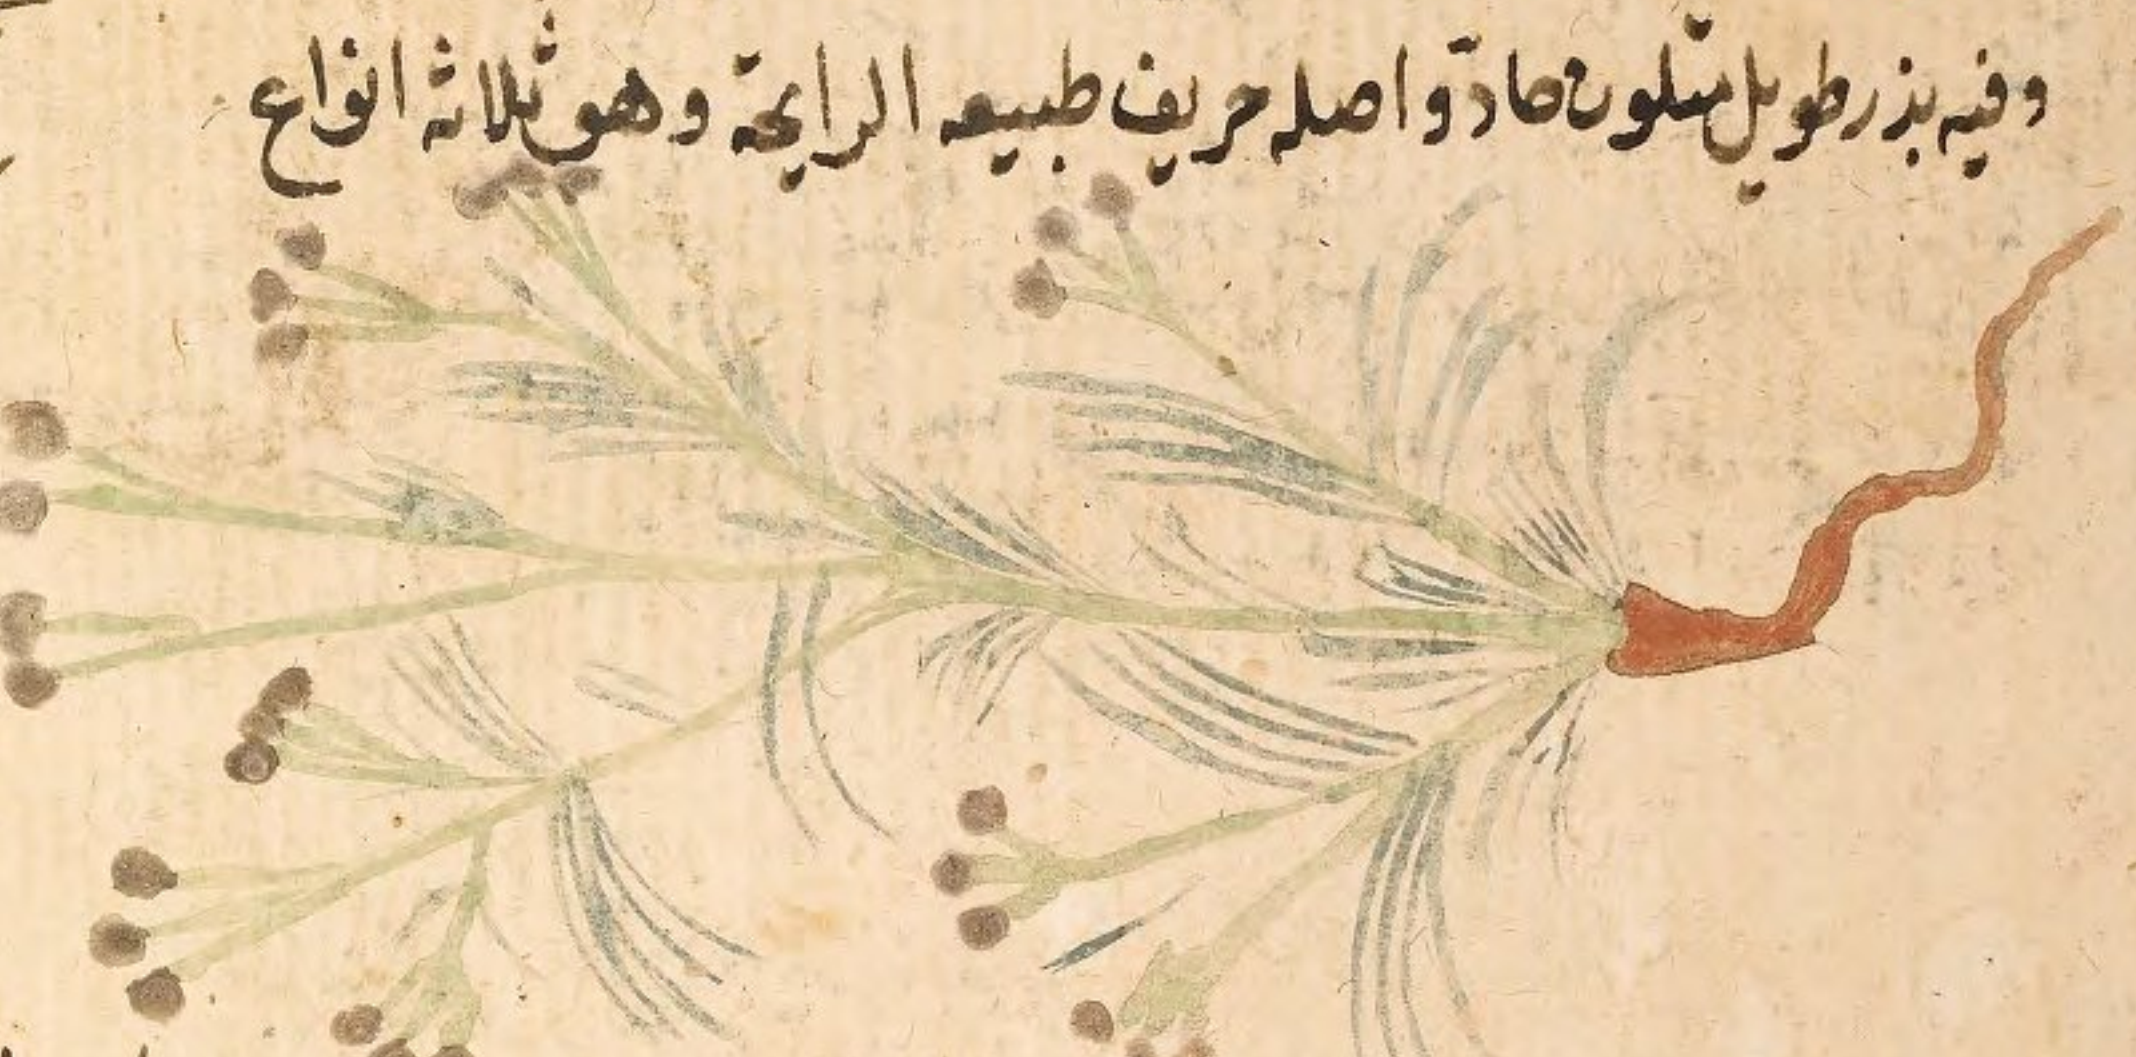 وفيه بذر طويل متلون حادّ واصله حريف طبيعه الرايحة وهو ثلاثة انواع